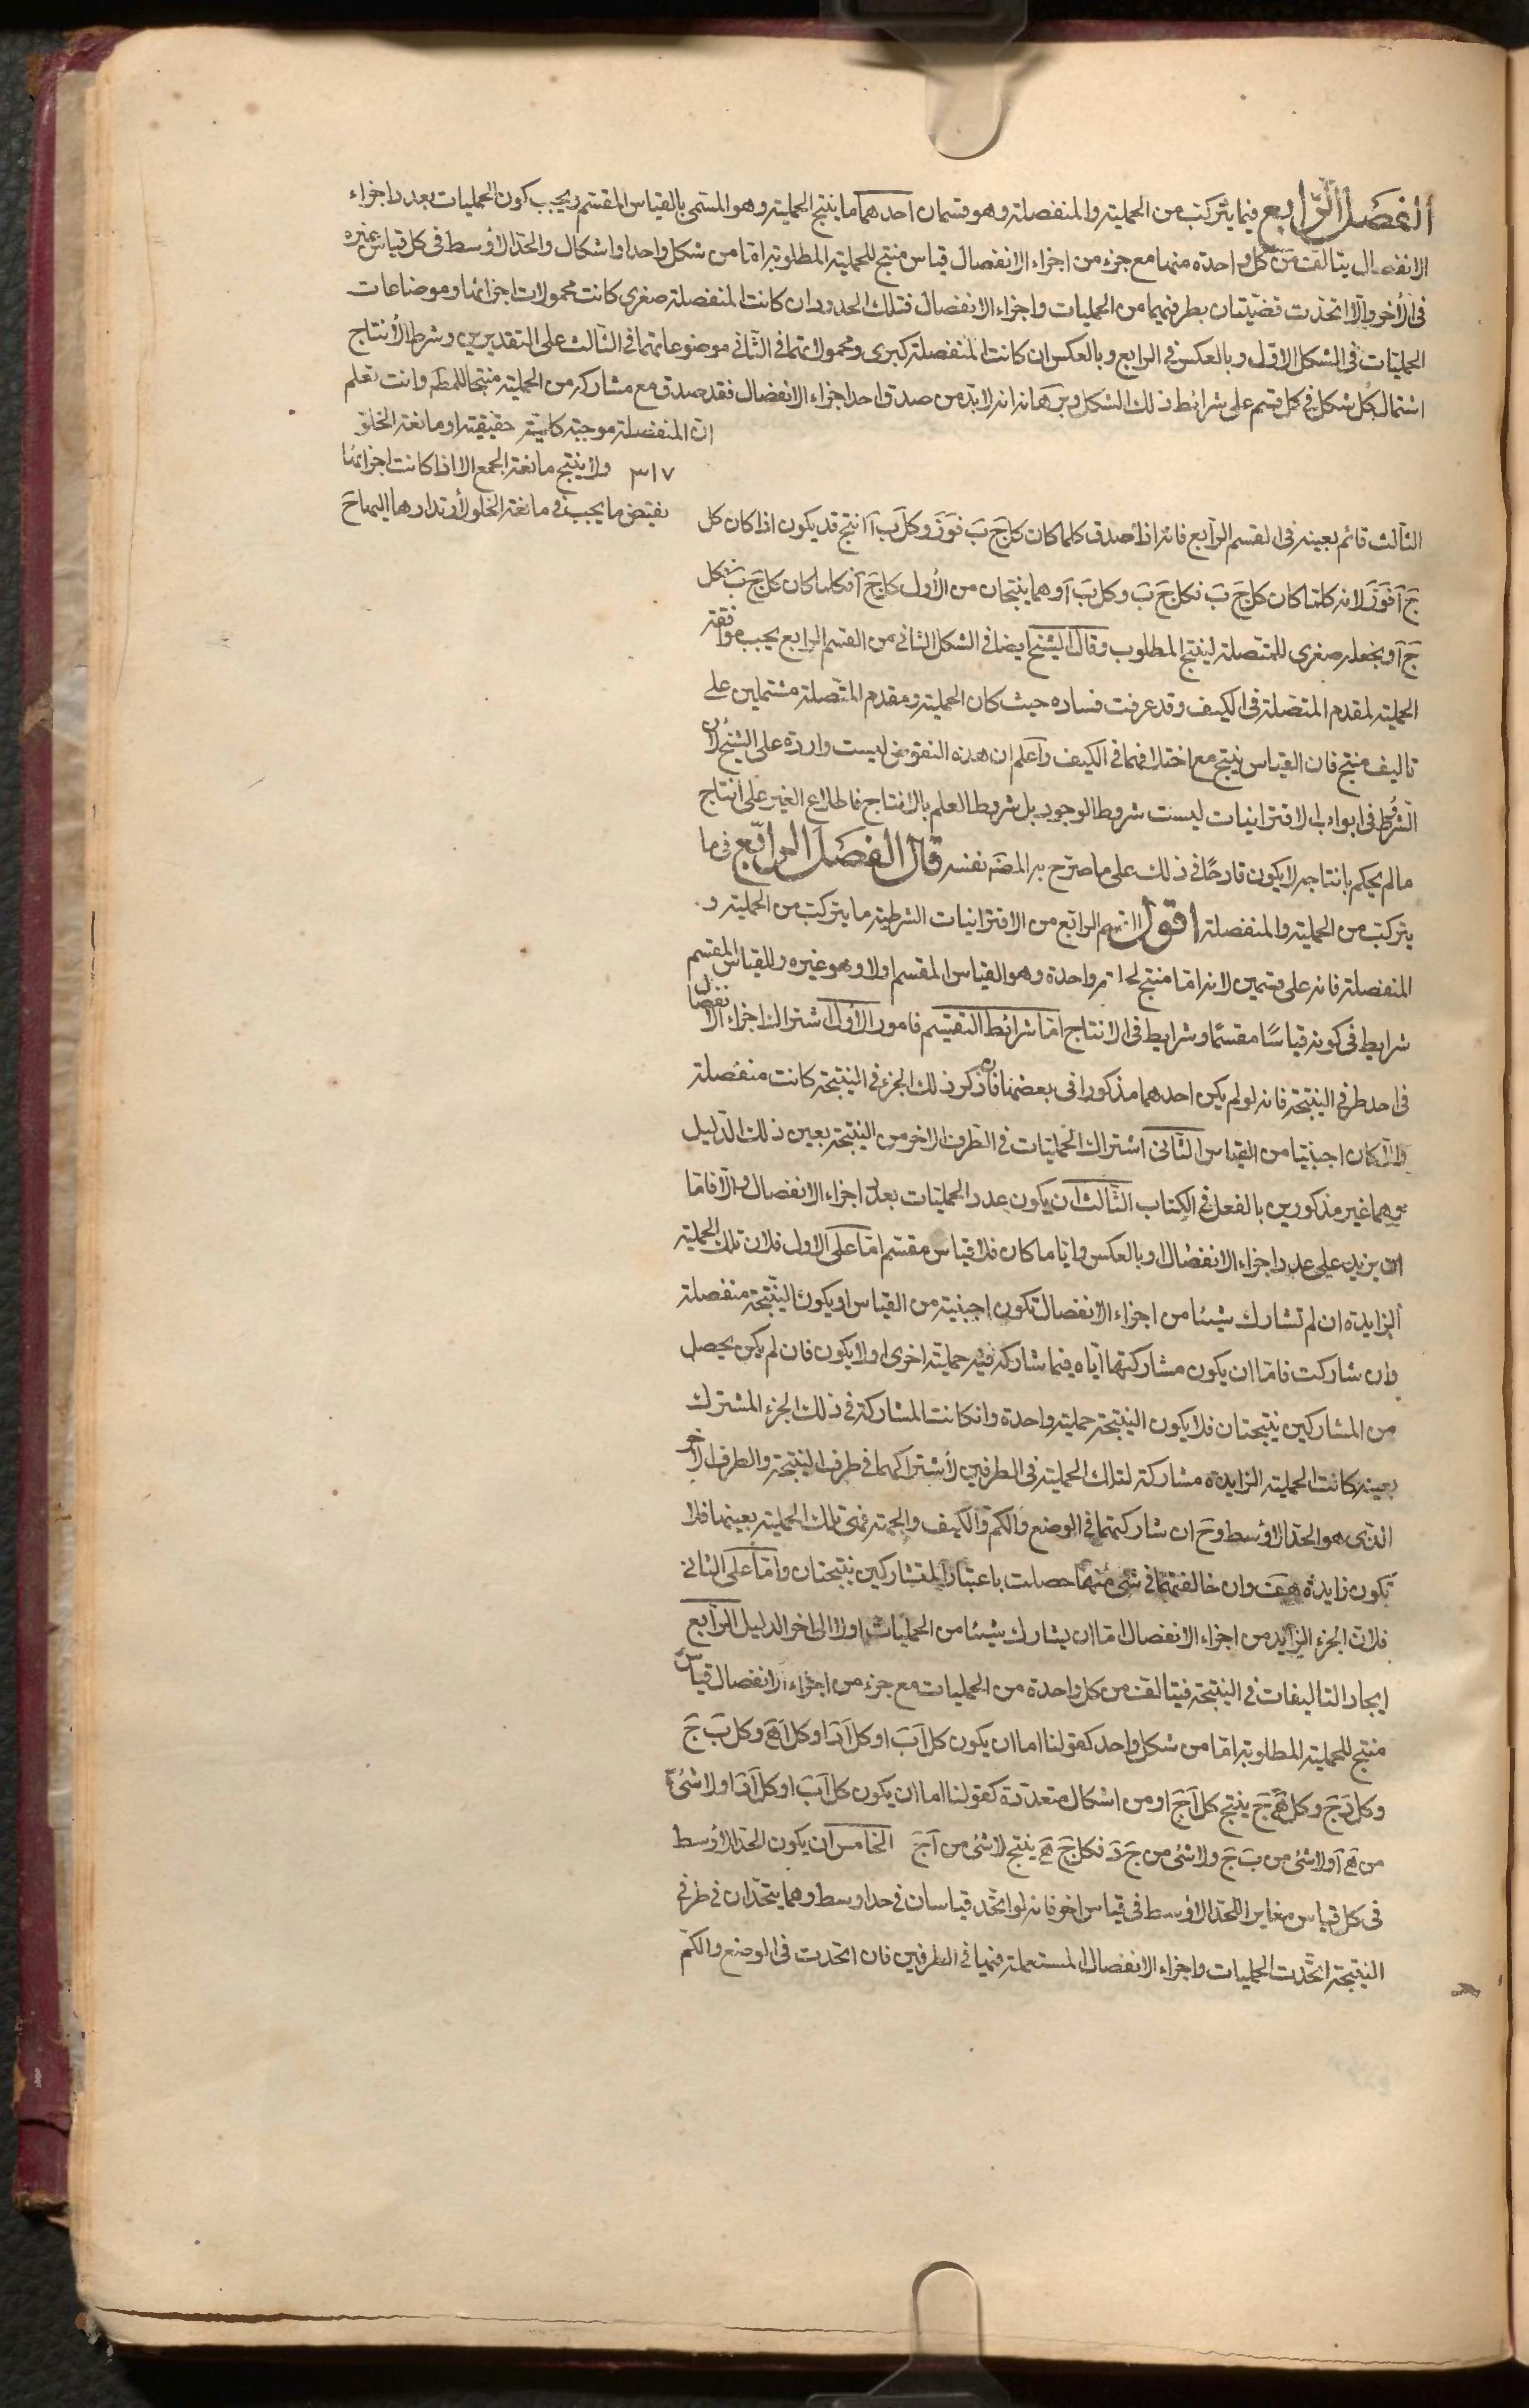 الفصل الرابع فيما يتركب من الحملية والمنفصلة وهو قسمان احدهما ما ينتج الحملية وهو المسمى بالقياس المقسم ويجب كون الحمليات بعدد اجزاء
الانفصال يتالف من كل واحدة منها مع جزء من اجزاء الانفصال قياس منتج للحملية المطلوبة اما من شكل واحد او اشكال والحد الاوسط فى كل قياس غيره
فى الاخر والا اتحدت قضيتان بطرفيهما من الحمليات واجزاء الانفصال فتلك الحدود ان كانت المنفصلة صغرى كانت محمولات اجزائها وموضاعات
الحمليات فى الشكل الاول وبالعكس فى الرابع وبالعكس ان كانت المنفصلة كبرى ومحمولاتهما فى الثانى موضوعاتهما فى الثالث على التقديرين وشرط الأنتاج
اشتمال كل شكل فى كل قسم على شرائط ذلك الشكل وبرهانه انه لابد من صدق احد اجزاء الانفصال فقد صدق مع مشاركه من الحملية منتجا للمط وانت تعلم
ان المنفصلة موجبة كلية حقيقية او مانعة الخلو
٣١٧ ولا ينتج مانعة الجمع الا اذا كانت اجزائها
نقيض ما يجب فى مانعة الخلو لأرتدادها اليها ح
الثالث قائم بعينه فى القسم الرابع فانه اذا صدق كلما كان كل ج ب فوز وكل ب آ انتج قد يكون اذا كان كل
ج آ فوز لانه كلما كان كل ج ب فكل ج ب وكل ب آ وهما ينتجان من الأول كل ج آ فكلما كان كل ج ب فكل
ج آ ونجعله صغرى للمتصلة لينتج المطلوب وقال الشيخ ايضا فى الشكل الثانى من القسم الرابع يجب موافقة
الحملية لمقدم المتصلة فى الكيف وقد عرفت فساده حيث كان الحملية ومقدم المتصلة مشتملين على
تاليف منتج فان القياس ينتج مع اختلافهما فى الكيف واعلم ان هذه النقوض ليست واردة على الشيخ لان
الشروط فى ابواب الاقترانيات ليست شروط الوجود بل شروط العلم بالانتاج فاطلاع الغير على انتاج
مالم يحكم بانتاجه لا يكون قادحًا فى ذلك على ما صرح به المصَه نفسه قال الفصل الرابع فى ما
يتركب من الحملية والمنفصلة اقول القسم الرابع من الاقترانيات الشرطية ما يتركب من الحملية و
المنفصلة فانه على قسمين لانه اما منتج لحملية واحدة وهو القياس المقسم اولا وهو غيره وللقياس المقسم
شرايط فى كونه قياسًا مقسمًا وشرايط فى الانتاج اما شرائط التقسيم فامور الأول اشتراك اجزاء الانفصال
فى احد طرفى النتيجة فانه لو لم يكن احدهما مذكورا فى بعضها فان ذكر ذلك الجزء فى النتيجة كانت منفصلة
والا كان اجنبيا من القياس الثانى اشتراك الحمليات فى الطرف الاخر من النتيجة بعين ذلك الدليل
وهما غير مذكورين بالفعل فى الكتاب الثالث ان يكون عدد الحمليات بعدد اجزاء الانفصال والا فاما
ان يزيد على عدد اجزاء الانفصال او بالعكس وايا ما كان فلا قياس مقسم اما على الاول فلان تلك الحملية
الزايدة ان لم تشارك شيئا من اجزاء الانفصال تكون اجنبية من القياس او يكون النتيجة منفصلة
وان شاركت فاما ان يكون مشاركتها اياه فيما شاركه فيه حملية اخرى اولا يكون فان لم يكن يحصل
من المشاركين نتيجتان فلا يكون النتيجة حملية واحدة وانكانت المشاركة فى ذلك الجزء المشترك
بعينه كانت الحملية الزايدة مشاركة لتلك الحملية فى الطرفين لأشتراكهما فى طرف النتيجة والطرف الاخر
الذى هو الحد الاوسط وح ان شاركتهما فى الوضع والكم والكيف والجهة فهى تلك الحملية بعينها فلا
تكون زايدة هف وان خالفتها فى شئ منها حصلت باعتبار المتشاركين نتيجتان واما على الثانى
فلان الجزء الزايد من اجزاء الانفصال اما ان يشارك شيئا من الحمليات اولا الى اخر الدليل الرابع
ايجاد التاليفات فى النتيجة فيتالف من كل واحدة من الحمليات مع جزء من اجزاء الانفصال قياس
منتج للحملية المطلوبة اما من شكل واحد كقولنا اما ان يكون كل آ ب او كل آ د او كل آ ه وكل ب ج
وكل د ج وكل ه ج ينتج كل آ ج او من اشكال متعددة كقولنا اما ان يكون كل آ ب او كل آ د او لا شئ
من ه آ ولا شئ من ب ج ولا شئ من ج د فكل ج ه ينتج لا شئ من آ ج الخامس ان يكون الحد الاوسط
فى كل قياس مغايرا للحد الاوسط فى قياس اخر فانه لو اتحد قياسان فى حد اوسط وهما يتحدان فى طرفى
النتيجة اتحدت الحمليات واجزاء الانفصال المستعملة فيهما فى الطرفين فان اتحدت فى الوضع والكم